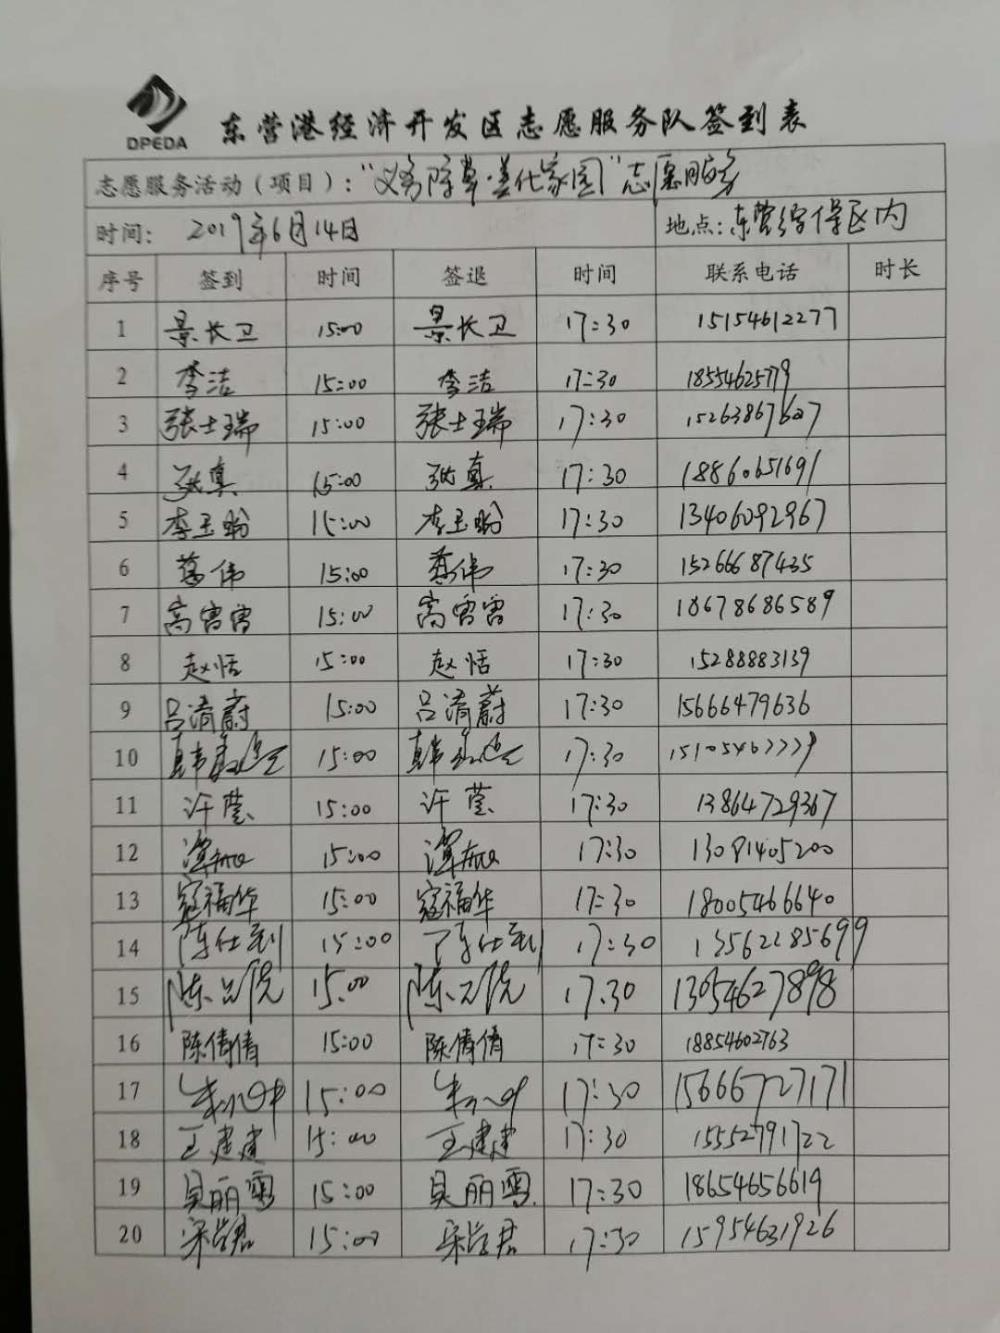 DPEDA
东营港经济开发区志愿服务队签到表
志愿服务活动（项目）："义务除草·美化家园"志愿服务
时间： 2019年6月14日 地点：东营综保区内
序号 签到 时间 签退 时间 联系电话 时长
1 景长卫 15:00 景长卫 17:30 15154612277
2 李洁 15:00 李洁 17:30 18554625779
3 张士瑞 15:00 张士瑞 17:30 15263867607
4 张真 15:00 张真 17:30 18860651691
5 李玉盼 15:00 李玉盼 17:30 13406092967
6 伟 15:00 伟 17:30 15266687435
7 高雷雷 15:00 高雷雷 17:30 18678686589
8 赵恬 15:00 赵恬 17:30 15288883139
9 吕清蔚 15:00 吕清蔚 17:30 15666479636
10 韩 15:00 韩 17:30
11 许莹 15:00 许莹 17:30 13864729367
12 15:00 17:30 13081405200
13 寇福华 15:00 寇福华 17:30 18005466640
14 陈仕 15:00 陈仕 17:30 13562285699
15 陈 15:00 陈 17:30 13054627898
16 陈倩倩 15:00 陈倩倩 17:30 18854602763
17 朱 15:00 朱 17:30 15666727171
18 王建建 15:00 王建建 17:30 15552791722
19 吴丽雪 15:00 吴丽雪 17:30 18654656619
20 宋学君 15:00 宋学君 17:30 15954631926